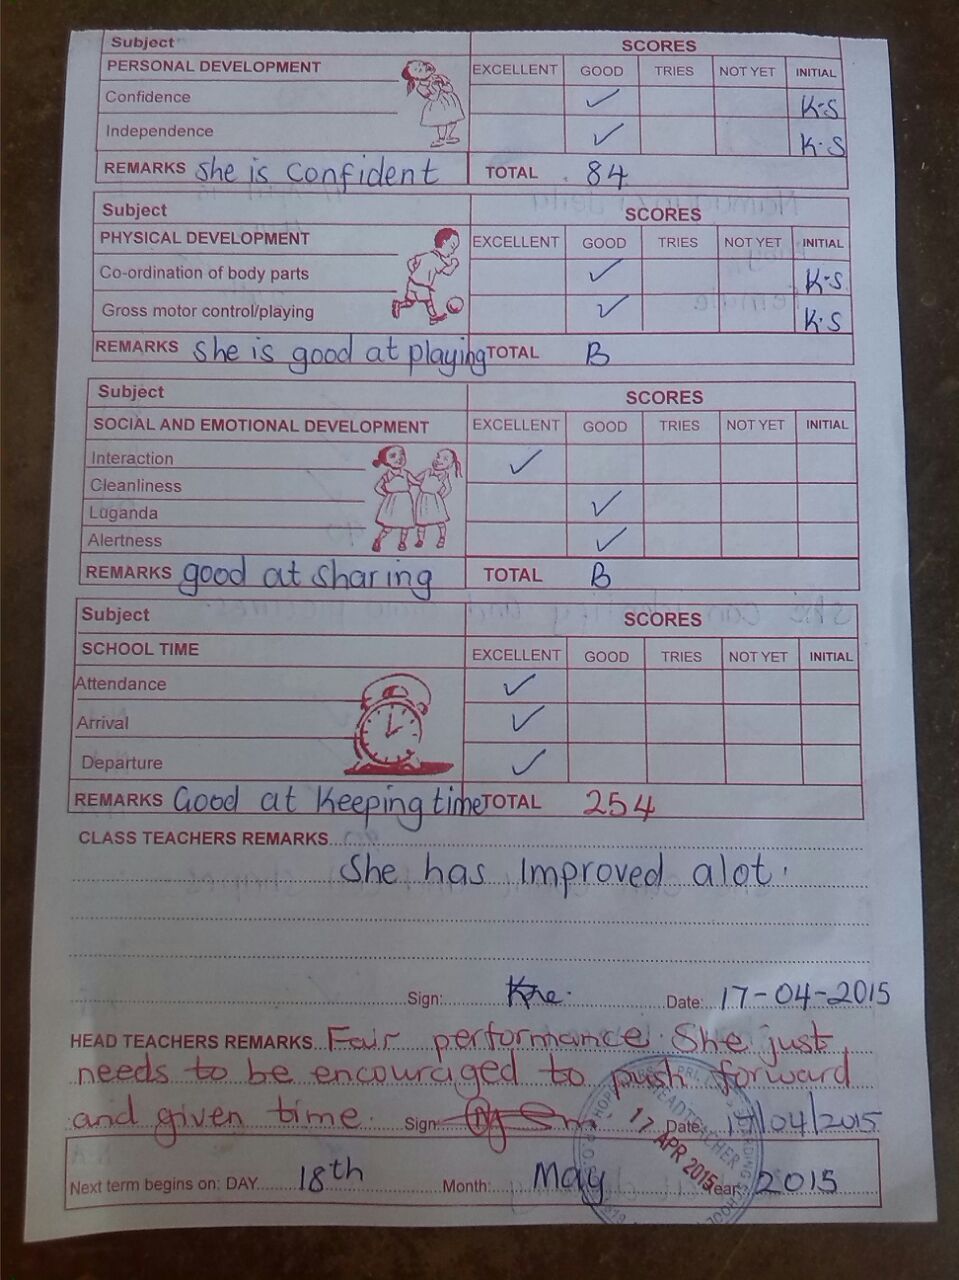 Subject SCORES
PERSONAL DEVELOPMENT EXCELLENT GOOD TRIES NOT YET INITIAL
Confidence ✓ K-S
Independence ✓ K.S
REMARKS She is confident TOTAL 84
Subject SCORES
PHYSICAL DEVELOPMENT EXCELLENT GOOD TRIES NOT YET INITIAL
Co-ordination of body parts ✓ K-S
Gross motor control/playing ✓ K.S
REMARKS She is good at playing TOTAL B
Subject SCORES
SOCIAL AND EMOTIONAL DEVELOPMENT EXCELLENT GOOD TRIES NOT YET INITIAL
Interaction ✓
Cleanliness
Luganda ✓
Alertness ✓
REMARKS good at sharing TOTAL B
Subject SCORES
SCHOOL TIME EXCELLENT GOOD TRIES NOT YET INITIAL
Attendance ✓
Arrival ✓
Departure ✓
REMARKS Good at Keeping time TOTAL 254
CLASS TEACHERS REMARKS
She has Improved alot.
Sign: Date: 17-04-2015
HEAD TEACHERS REMARKS Fair performance. She just
needs to be encouraged to push forward
and given time. Sign Date: 17/04/2015
HEADTEACHER
17 APR 2015
Next term begins on: DAY 18th Month: May Year 2015